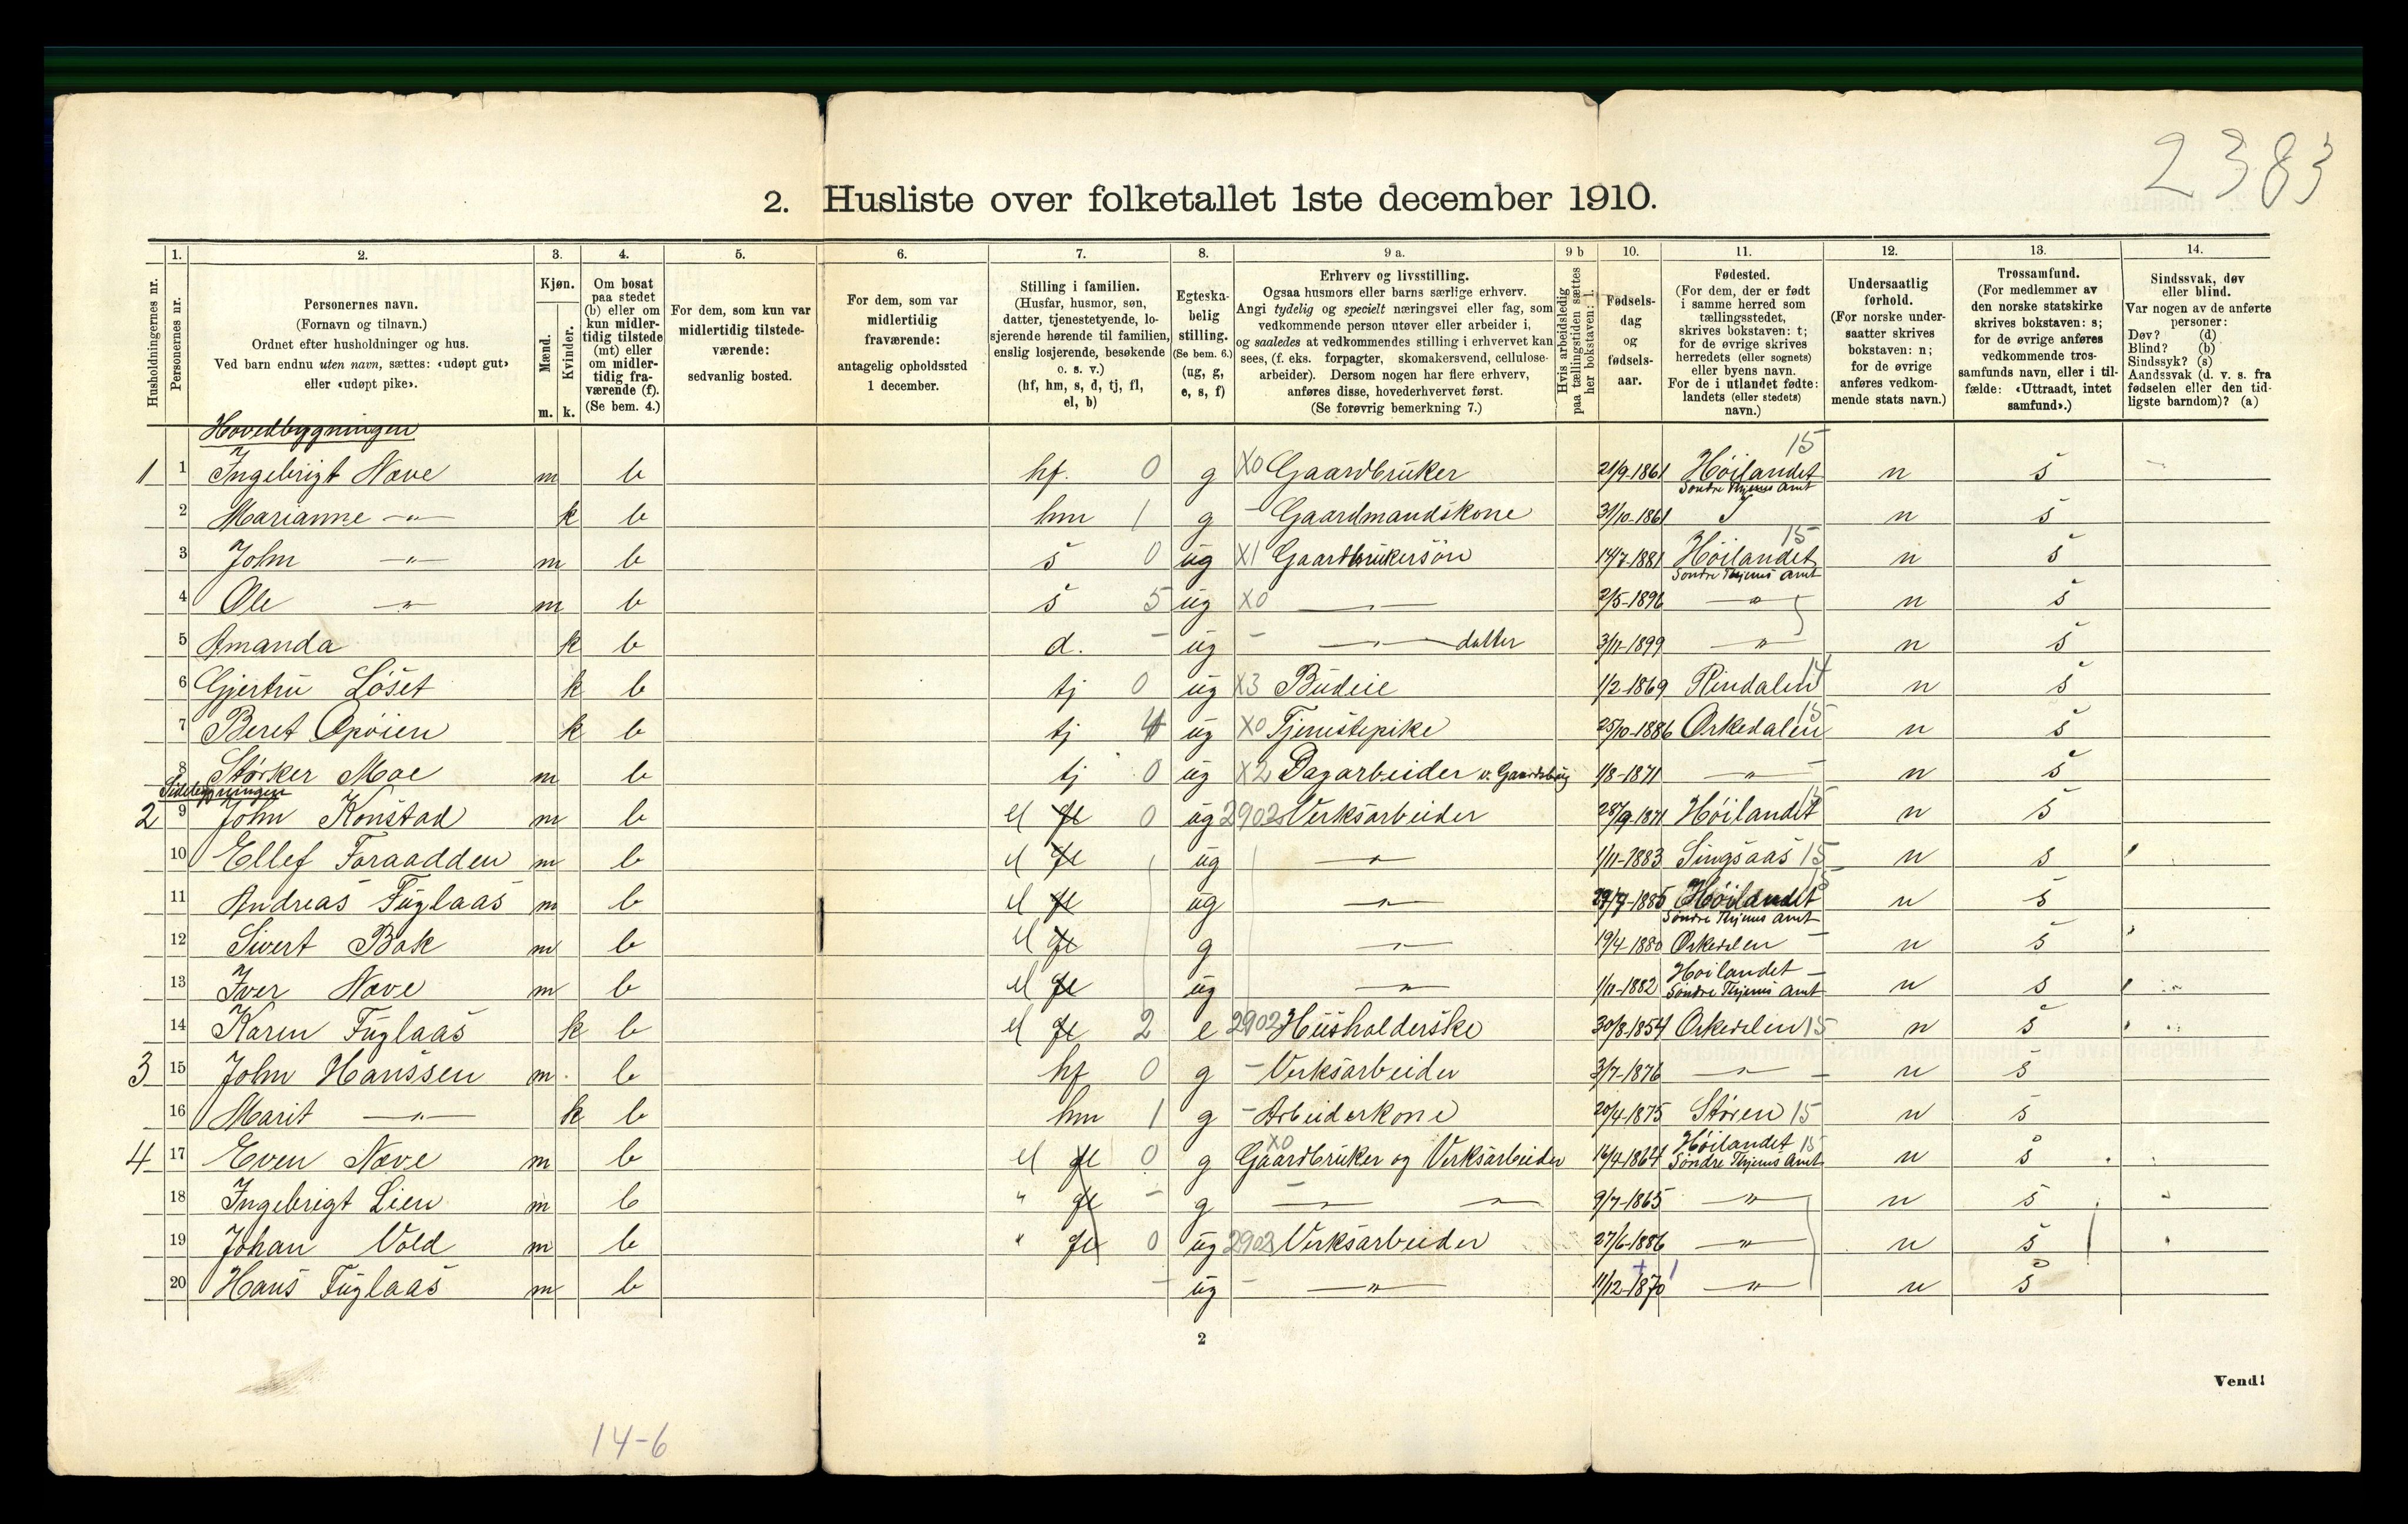 2383
2. Husliste over folketallet 1ste december 1910.
Husholdningernes nr.
1.
Personernes nr.
2.
Personernes navn.
(Fornavn og tilnavn.)
Ordnet efter husholdninger og hus.
Ved barn endnu uten navn, sættes: «udøpt gut»
eller «udøpt pike».
3.
Kjøn.
Mænd.
Kvinder.
m. k.
4.
Om bosat
paa stedet
(b) eller om
kun midler-
tidig tilstede
(mt) eller
om midler-
tidig fra-
værende (f).
(Se bem. 4.)
5.
For dem, som kun var
midlertidig tilstede-
værende:
sedvanlig bosted.
6.
For dem, som var
midlertidig
fraværende:
antagelig opholdssted
1 december.
7.
Stilling i familien.
(Husfar, husmor, søn,
datter, tjenestetyende, lo-
sjerende hørende til familien,
enslig losjerende, besøkende
o. s. v.)
(hf, hm, s, d, tj, fl,
el, b)
8.
Egteska-
belig
stilling.
(Se bem. 6.)
(ug, g,
e, s, f)
9 a.
Erhverv og livsstilling.
Ogsaa husmors eller barns særlige erhverv.
Angi tydelig og specielt næringsvei eller fag, som
vedkommende person utøver eller arbeider i,
og saaledes at vedkommendes stilling i erhvervet kan
sees, (f. eks. forpagter, skomakersvend, cellulose-
arbeider). Dersom nogen har flere erhverv,
anføres disse, hovederhvervet først.
(Se forøvrig bemerkning 7.)
9 b
Hvis arbeidsledig
paa tællingstiden sættes
her bokstaven: l.
10.
Fødsels-
dag
og
fødsels-
aar.
11.
Fødested.
(For dem, der er født
i samme herred som
tællingsstedet,
skrives bokstaven: t;
for de øvrige skrives
herredets (eller sognets)
eller byens navn.
For de i utlandet fødte:
landets (eller stedets)
navn.)
12.
Undersaatlig
forhold.
(For norske under-
saatter skrives
bokstaven: n;
for de øvrige
anføres vedkom-
mende stats navn.)
13.
Trossamfund.
(For medlemmer av
den norske statskirke
skrives bokstaven: s;
for de øvrige anføres
vedkommende tros-
samfunds navn, eller i til-
fælde: «Uttraadt, intet
samfund».)
14.
Sindssvak, døv
eller blind.
Var nogen av de anførte
personer:
Døv? (d)
Blind? (b)
Sindssyk? (s)
Aandssvak (d. v. s. fra
fødselen eller den tid-
ligste barndom)? (a)
Hovedbygningen
1 1 Ingebrigt Nøve m b hf. 0 g X0 Gaardbruker 21/9-1861 Høilandet 15 n s
Söndre Thjems Amt
2 Marianne -"- k b hm 1 g - Gaardmandskone 31/10-1861 n s
3 John -"- m b s 0 ug X1 Gaardbrukersön 14/7-1881 Høilandet 15 n s
Söndre Thjems Amt
4 Ole -"- m b s 5 ug X0 -"- 2/5-1896 -"- n s
5 Amanda k b d. - ug - -"- datter 3/11-1899 -"- n s
6 Gjertru Løset k b tj 0 ug X3 Budeie 1/2-1869 Rindalen 14 n s
7 Beret Opøien k b tj 4 ug X0 Tjenestepike 25/10-1886 Orkedalen 15 n s
8 Størker Moe m b tj 0 ug X2 Dagarbeider v. Gaardsbrug 1/8-1871 -"- n s
Sidebygningen
2 9 John Konstad m b el fl 0 ug 2902 Verksarbeider 28/9-1871 Høilandet 15 n s
10 Ellef Foraadden m b el fl ug -"- 1/11-1883 Singsaas 15 n s
11 Andreas Fuglaas m b el fl ug -"- 1885 Høilandet 15 n s
Söndre Thjems Amt
12 Sivert Bak m b el fl g -"- 19/4-1880 Orkedalen - n s
13 Iver Nøve m b el fl ug -"- 1/11-1882 Høilandet - n s
Söndre Thjems Amt
14 Karen Fuglaas k b el fl 2 e 2902 Husholderske 30/8-1854 Orkedalen 15 n s
3 15 John Hanssen m b hf 0 g - Verksarbeider 3/7-1876 -"- - n s
16 Marit -"- k b hm 1 g - Arbeiderkone 20/4-1875 Støren 15 n s
4 17 Even Nøve m b el fl 0 g X0 Gaardbruker og Verksarbeider 16/4-1864 Høilandet 15 n s
Söndre Thjems Amt
18 Ingebrigt Lien m b " fl - g -"- -"- 9/7-1865 -"- n s
19 Johan Vold m b " fl 0 ug 2902 Verksarbeider 27/6-1886 -"- n s
20 Hans Fuglaas m b - ug - -"- 11/12-1870 -"- n s
2
Vend!
14-6